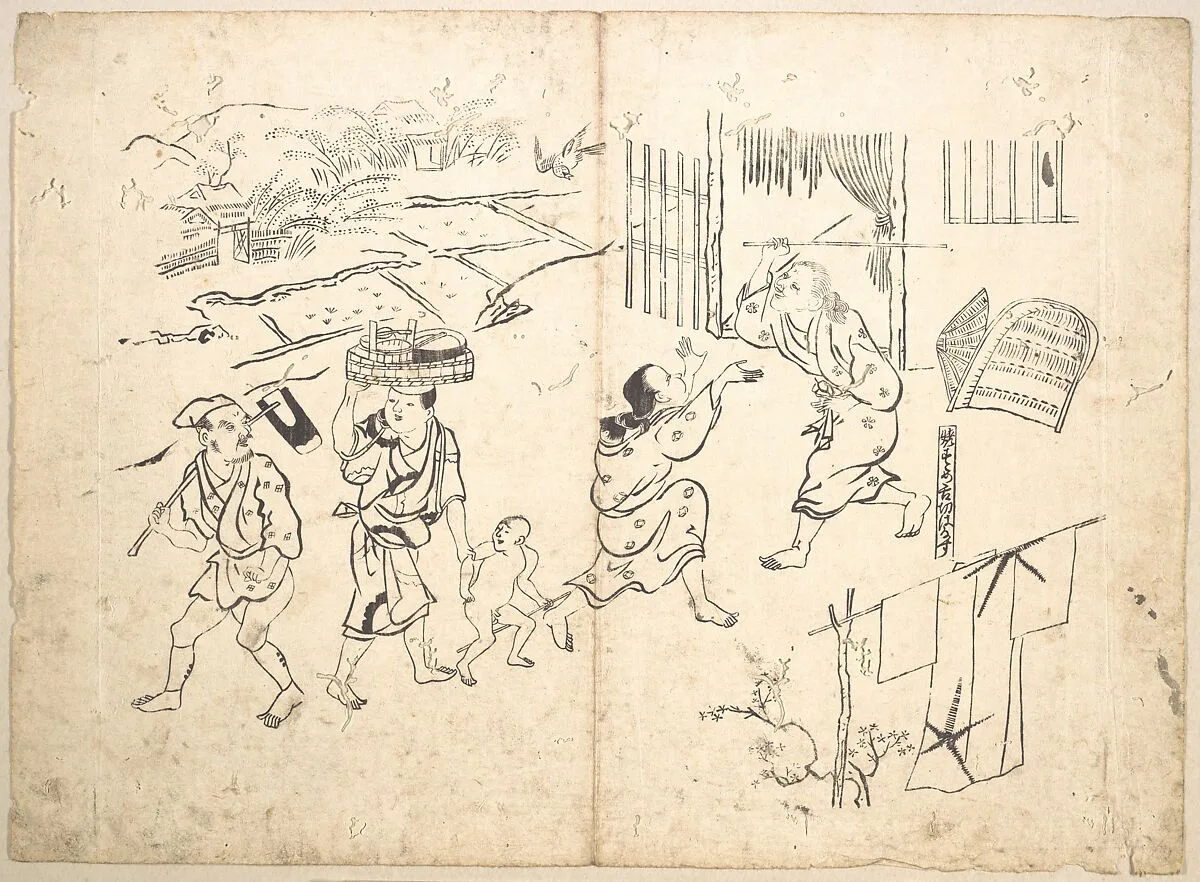 姥すゝめ舌切はなす